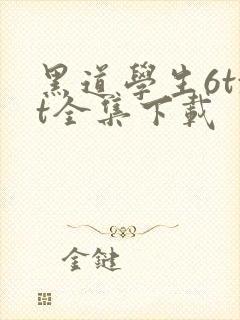 黑道學生6tx
t全集下載
金鍵